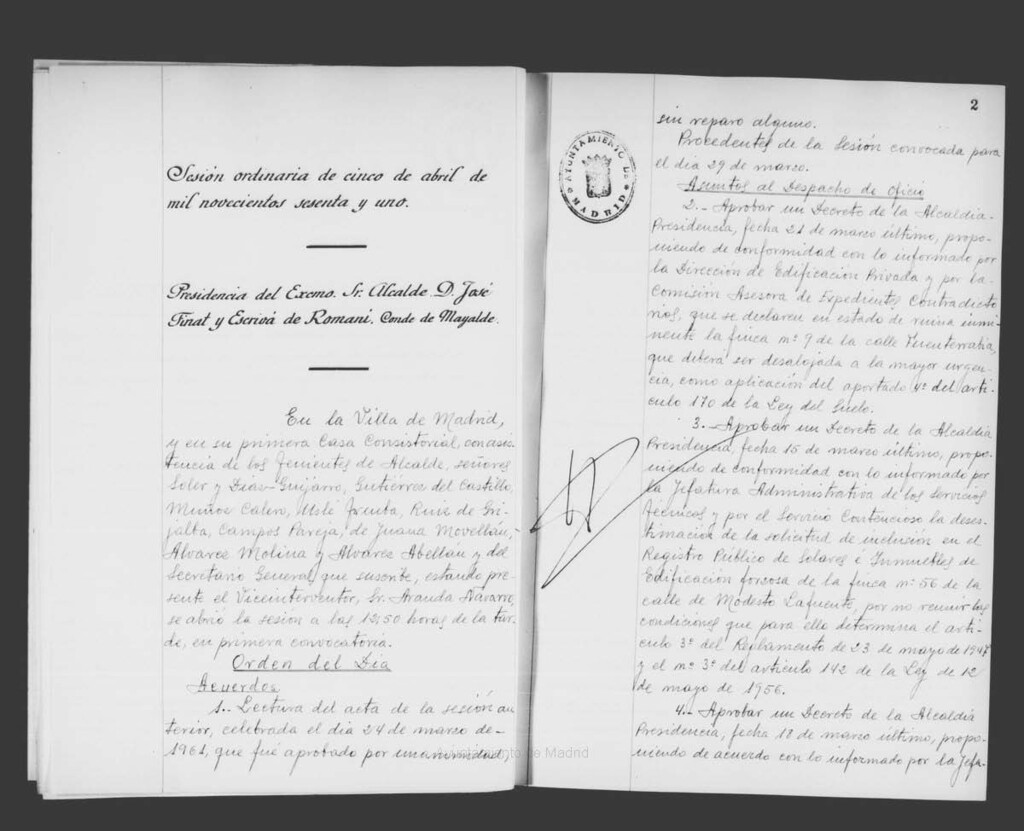 Sesión ordinaria de cinco de abril de
mil novecientos sesenta y uno.
Presidencia del Excmo. Sr. Alcalde D. José
Finat y Escrivá de Romaní, Conde de Mayalde.
En la Villa de Madrid,
y en su primera Casa Consistorial, con asis-
tencia de los Tenientes de Alcalde, señores
Soler y Díaz-Guijarro, Gutiérrez del Castillo,
Muñoz Calero, Ruiz de Gri-
jalta, Campos Pareja, de Juana Movellán,
Alvarez Molina y Alvarez Abellán y del
Secretario General que suscribe, estando pre-
sente el Viceinterventor, Sr. Aranda Navarro,
se abrió la sesión a las 12,50 horas de la tar-
de, en primera convocatoria.
Orden del Día
Acuerdos
1.- Lectura del acta de la sesión an
terior, celebrada el día 24 de marzo de
1961, que fué aprobado por unanimidad,
2
sin reparo alguno.
Procedentes de la Sesión convocada para
el día 29 de marzo.
Asuntos al Despacho de Oficio
2.- Aprobar un Decreto de la Alcaldía-
Presidencia, fecha 21 de marzo último, propo-
niendo de conformidad con lo informado por
la Dirección de Edificación Privada y por la
Comisión Asesora de Expedientes Contradicto
rios, que se declaren en estado de ruina inmi-
nente la finca nº 9 de la calle Fuenterrabía,
que deberá ser desalojada a la mayor urgen-
cia, como aplicación del apartado 4º del artí-
culo 170 de la Ley del Suelo.
3.- Aprobar un Decreto de la Alcaldía
Presidencia, fecha 15 de marzo último, propo-
niendo de conformidad con lo informado por
la Jefatura Administrativa de los Servicios
Técnicos y por el Servicio Contencioso la deses-
timación de la solicitud de inclusión en el
Registro Público de Solares é Inmuebles de
Edificación forzosa de la finca nº 56 de la
calle de Modesto Lafuente, por no reunir las
condiciones que para ello determina el artí-
culo 3º del Reglamento de 23 de mayo de 1947
y el nº 3º del artículo 142 de la Ley de 12
de mayo de 1956.
4.- Aprobar un Decreto de la Alcaldía
Presidencia, fecha 18 de marzo último, propo-
niendo de acuerdo con lo informado por la Jefa-
AYUNTAMIENTO DE MADRID
Ayuntamiento de Madrid